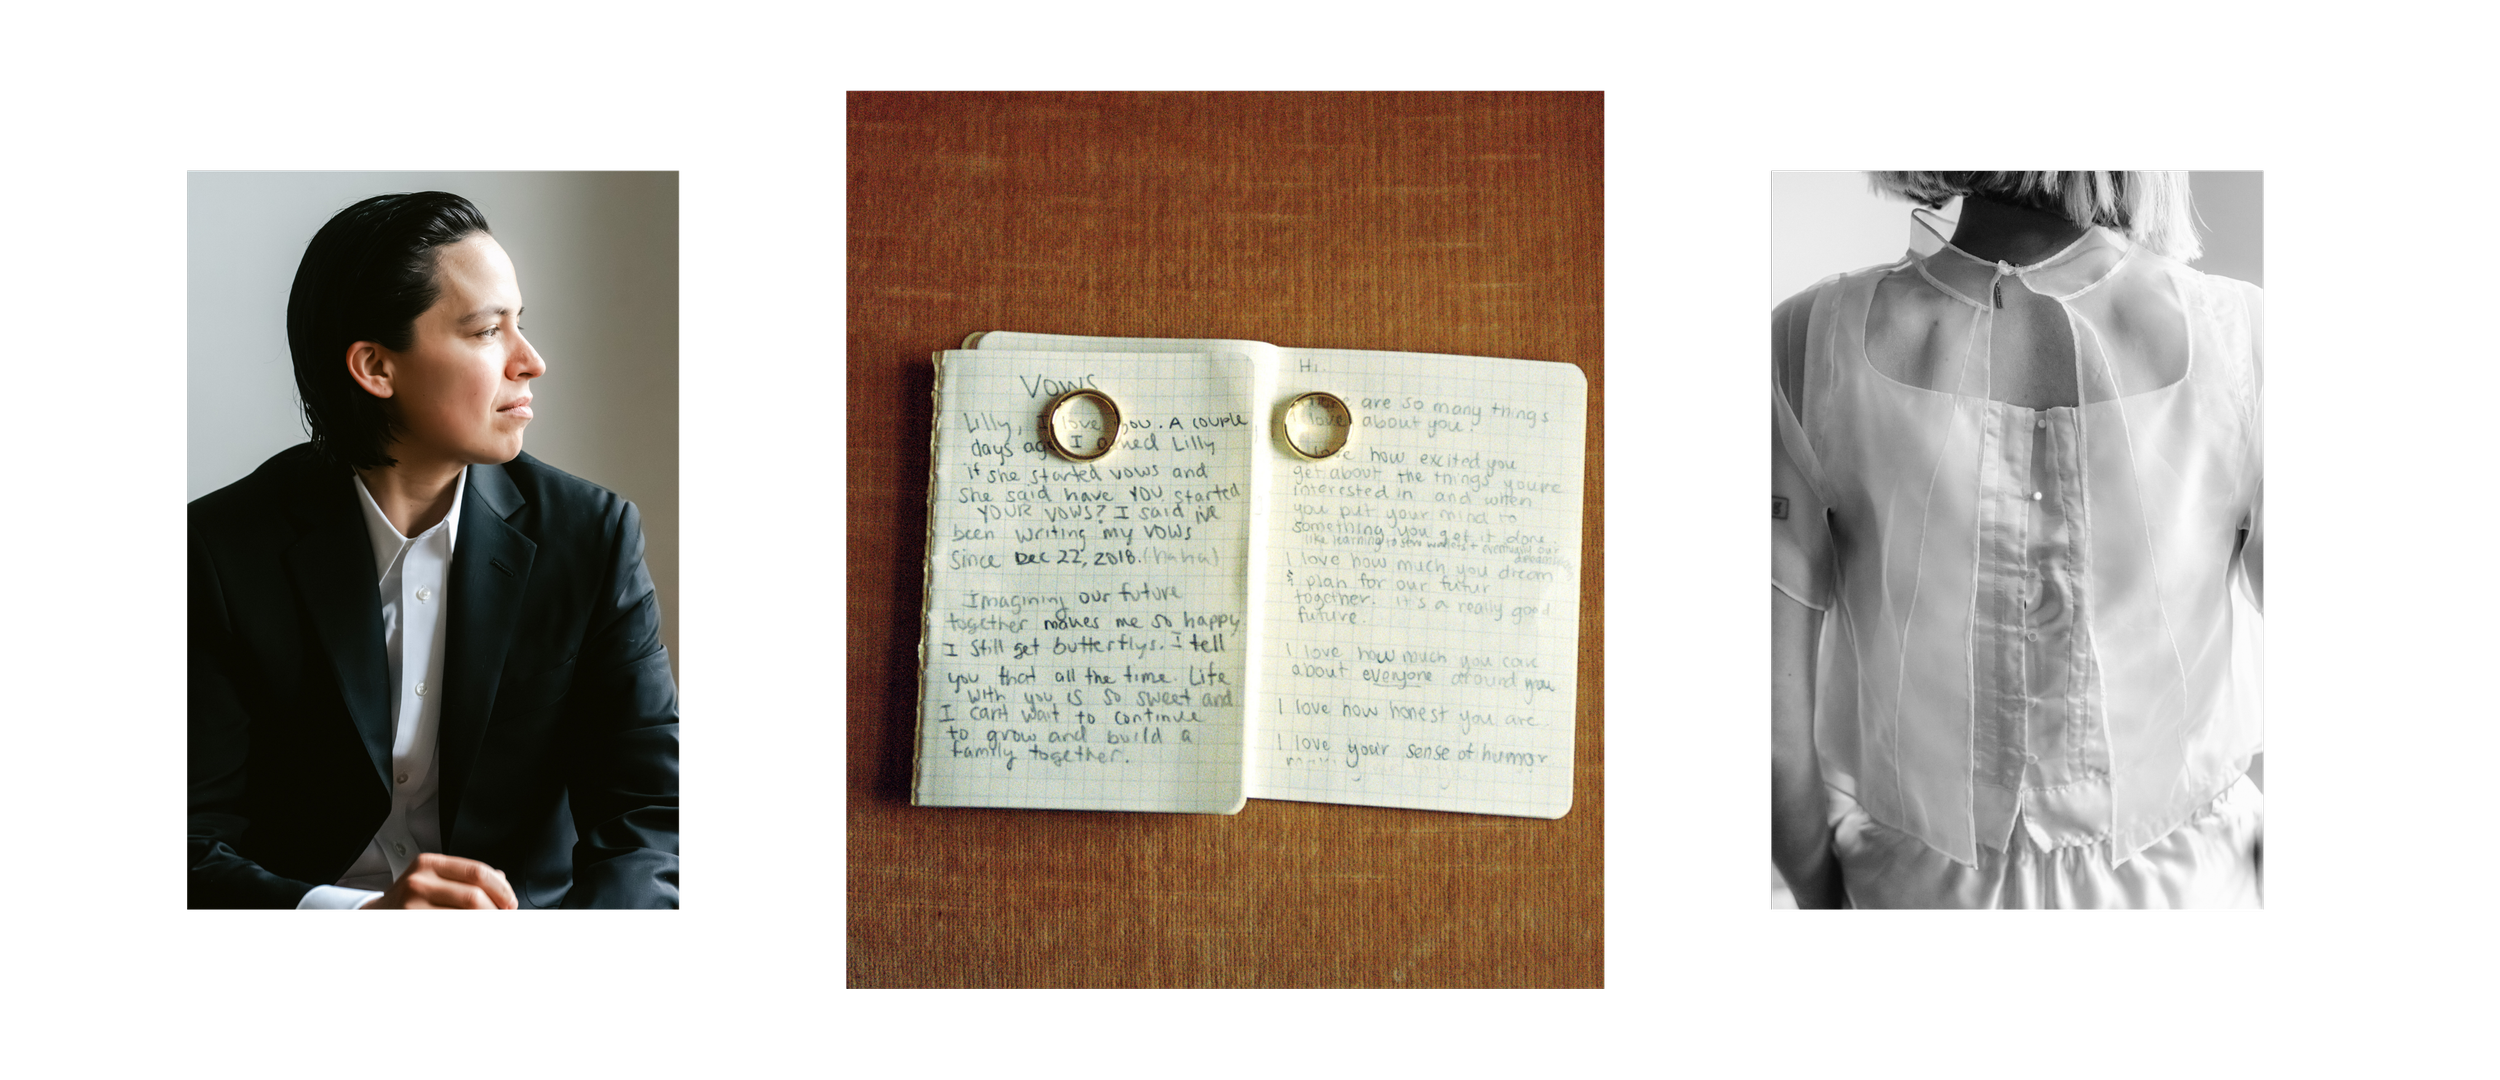 Vows
Lilly, I love you. A couple
days ago I asked Lilly
if she started vows and
she said have YOU started
YOUR VOWS? I said ive
been writing my vows
since Dec 22, 2018. (haha)
Imagining our future
together makes me so happy
I still get butterflys. I tell
you that all the time. Life
with you is so sweet and
I cant wait to continue
to grow and build a
family together.
Hi.
are so many things
I love about you.
how excited you
get about the things youre
interested in and when
you put your mind to
something you get it done.
like learning to sew wallets + eventually our
I love how much you dream
& plan for our futur
together. It's a really good
future.
I love how much you care
about everyone around you
I love how honest you are
I love your sense of humor